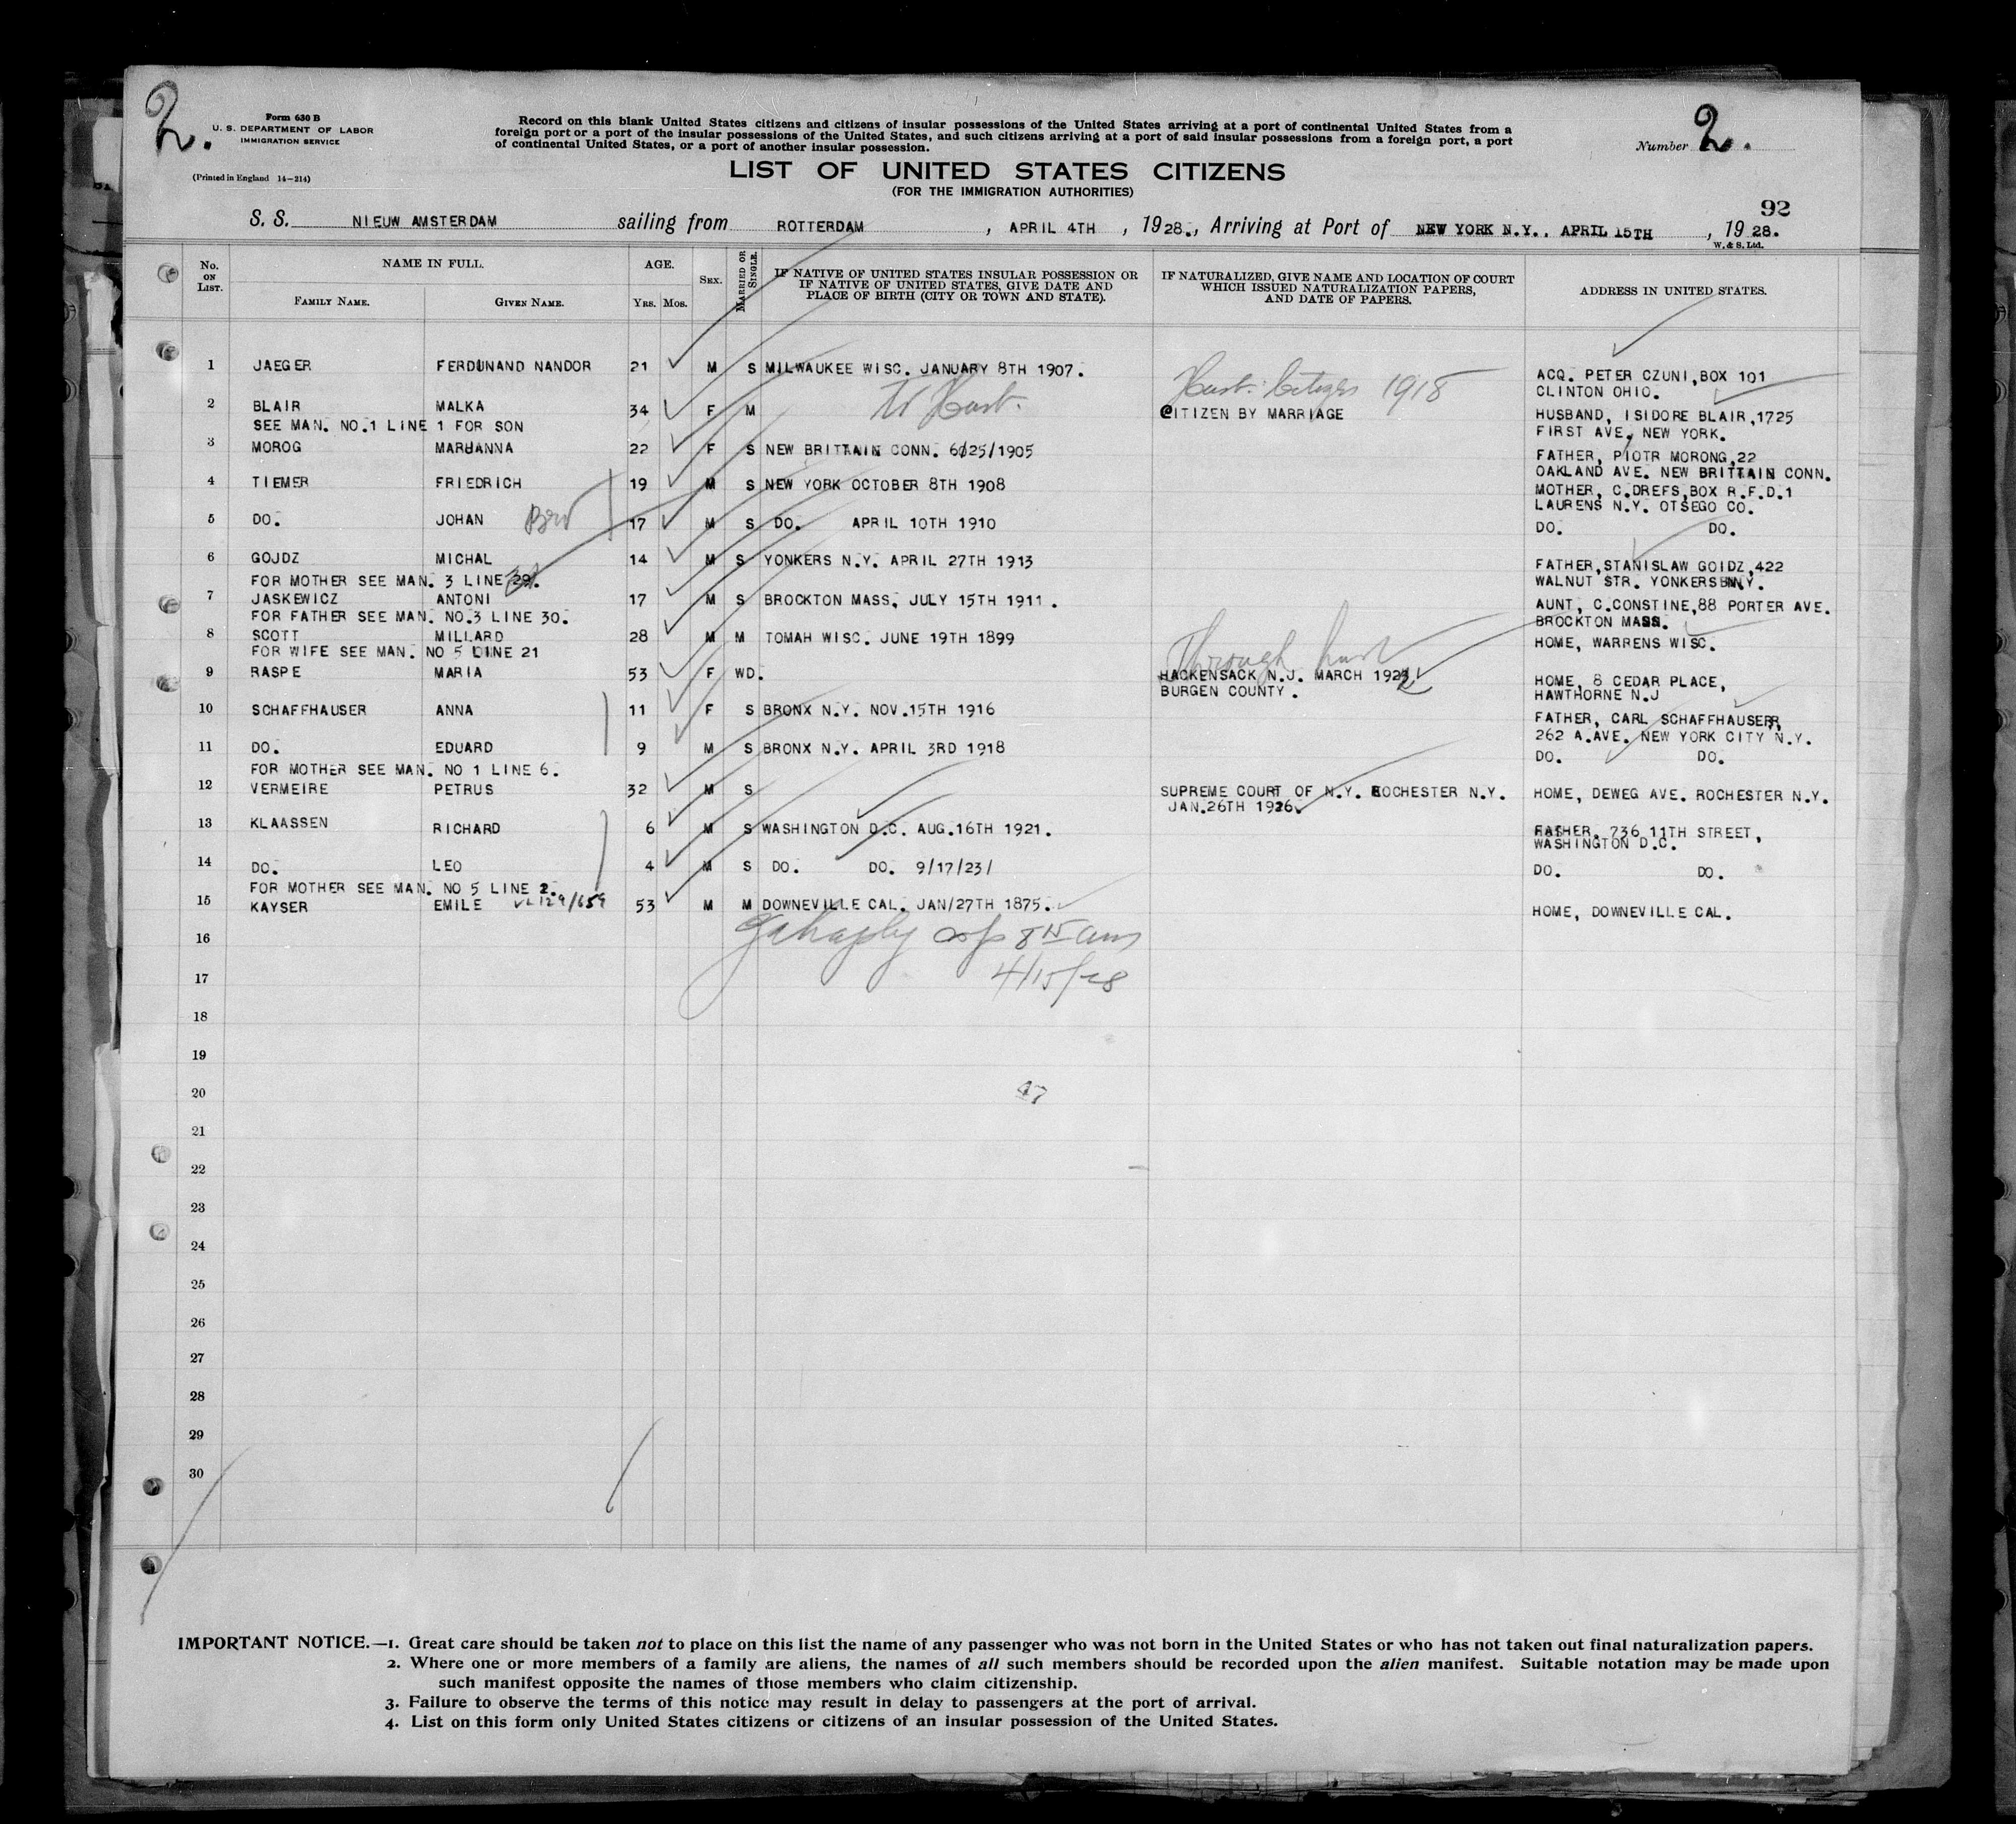 2.
Form 630 B
U. S. DEPARTMENT OF LABOR
IMMIGRATION SERVICE
(Printed in England 14—214)
Record on this blank United States citizens and citizens of insular possessions of the United States arriving at a port of continental United States from a
foreign port or a port of the insular possessions of the United States, and such citizens arriving at a port of said insular possessions from a foreign port, a port
of continental United States, or a port of another insular possession.
Number 2.
LIST OF UNITED STATES CITIZENS
(FOR THE IMMIGRATION AUTHORITIES)
92
S. S. NIEUW AMSTERDAM sailing from ROTTERDAM, APRIL 4TH, 1928., Arriving at Port of NEW YORK N.Y., APRIL 15TH, 1928.
W. & S. Ltd.
No. ON LIST.
NAME IN FULL.
FAMILY NAME. GIVEN NAME.
AGE.
YRS. MOS.
SEX.
MARRIED OR SINGLE.
IF NATIVE OF UNITED STATES INSULAR POSSESSION OR
IF NATIVE OF UNITED STATES, GIVE DATE AND
PLACE OF BIRTH (CITY OR TOWN AND STATE).
IF NATURALIZED, GIVE NAME AND LOCATION OF COURT
WHICH ISSUED NATURALIZATION PAPERS,
AND DATE OF PAPERS.
ADDRESS IN UNITED STATES.
1 JAEGER FERDUNAND NANDOR 21 M S MILWAUKEE WISC. JANUARY 8TH 1907. ACQ. PETER CZUNI,BOX 101
CLINTON OHIO.
Hust. Citizen 1918
2 BLAIR MALKA 34 F M CITIZEN BY MARRIAGE HUSBAND, ISIDORE BLAIR,1725
SEE MAN. NO.1 LINE 1 FOR SON FIRST AVE, NEW YORK.
3 MOROG MARUANNA 22 F S NEW BRITTAIN CONN. 6/25/1905 FATHER, PIOTR MORONG,22
OAKLAND AVE. NEW BRITTAIN CONN.
4 TIEMER FRIEDRICH 19 M S NEW YORK OCTOBER 8TH 1908 MOTHER, C.DREFS,BOX R.F.D.1
LAURENS N.Y. OTSEGO CO.
5 DO. JOHAN 17 M S DO. APRIL 10TH 1910 DO. DO.
6 GOJDZ MICHAL 14 M S YONKERS N.Y. APRIL 27TH 1913 FATHER,STANISLAW GOIDZ,422
FOR MOTHER SEE MAN. 3 LINE 29. WALNUT STR. YONKERS N.Y.
7 JASKEWICZ ANTONI 17 M S BROCKTON MASS, JULY 15TH 1911. AUNT, C.CONSTINE,88 PORTER AVE.
FOR FATHER SEE MAN. NO.3 LINE 30. BROCKTON MASS.
8 SCOTT MILLARD 28 M M TOMAH WISC. JUNE 19TH 1899 HOME, WARRENS WISC.
FOR WIFE SEE MAN. NO 5 LINE 21
Through hust
9 RASPE MARIA 53 F WD. HACKENSACK N.J. MARCH 192 HOME, 8 CEDAR PLACE,
BURGEN COUNTY. HAWTHORNE N.J
10 SCHAFFHAUSER ANNA 11 F S BRONX N.Y. NOV.15TH 1916 FATHER, CARL SCHAFFHAUSER,
262 A.AVE. NEW YORK CITY N.Y.
11 DO. EDUARD 9 M S BRONX N.Y. APRIL 3RD 1918 DO. DO.
FOR MOTHER SEE MAN. NO 1 LINE 6.
12 VERMEIRE PETRUS 32 M S SUPREME COURT OF N.Y. ROCHESTER N.Y. HOME, DEWEG AVE. ROCHESTER N.Y.
JAN.26TH 1926.
13 KLAASSEN RICHARD 6 M S WASHINGTON D.C. AUG.16TH 1921. FATHER. 736 11TH STREET,
WASHINGTON D.C.
14 DO. LEO 4 M S DO. DO. 9/17/23/ DO. DO.
FOR MOTHER SEE MAN. NO 5 LINE 2.
15 KAYSER EMILE 53 M M DOWNEVILLE CAL. JAN/27TH 1875. HOME, DOWNEVILLE CAL.
16
4/15/28
17
18
19
20
47
21
22
23
24
25
26
27
28
29
30
IMPORTANT NOTICE.—1. Great care should be taken not to place on this list the name of any passenger who was not born in the United States or who has not taken out final naturalization papers.
2. Where one or more members of a family are aliens, the names of all such members should be recorded upon the alien manifest. Suitable notation may be made upon
such manifest opposite the names of those members who claim citizenship.
3. Failure to observe the terms of this notice may result in delay to passengers at the port of arrival.
4. List on this form only United States citizens or citizens of an insular possession of the United States.